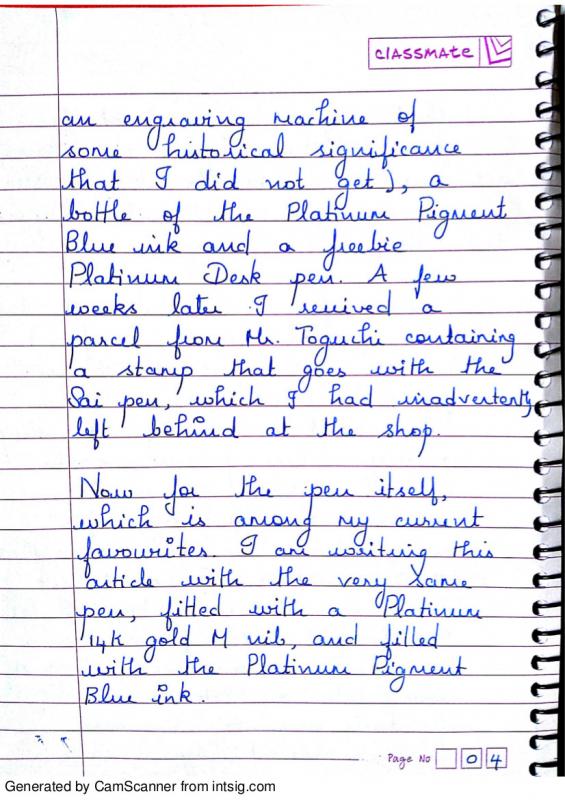 classmate
an engraving machine of
some historical significance
that I did not get), a
bottle of the Platinum Pigment
Blue ink and a freebie
Platinum Desk pen. A few
weeks later I received a
parcel from Mr. Toguchi containing
a stamp that goes with the
Sai pen, which I had inadvertently
left behind at the shop.
Now for the pen itself,
which is among my current
favourites. I am writing this
article with the very same
pen, fitted with a Platinum
14k gold M nib, and filled
with the Platinum Pigment
Blue ink.
Page No 04
Generated by CamScanner from intsig.com